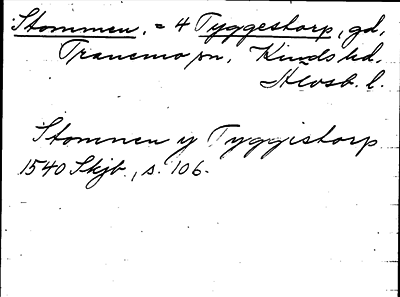 Stommen, = 4 Tyggestorp, gd,
Tranemo sn, Kinds hd,
Älvsb. l.
Stommen y Tyggistorp
1540 Skjb, s. 106.